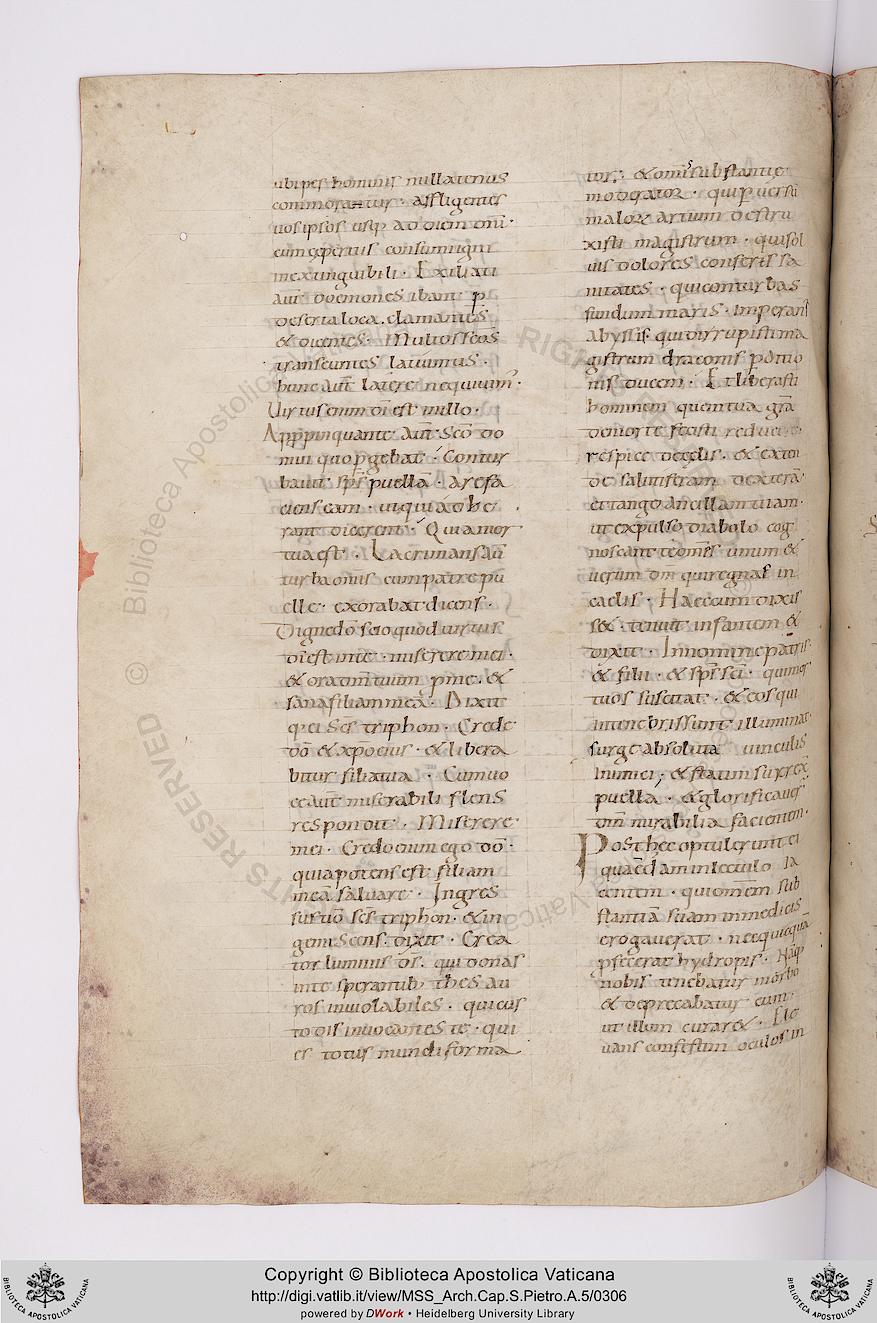 ubi pes hominis nullatenus
commorantur · affligentes
uos ipsos usq; ad diem dnī ·
cum expertus consumi igni
inextinguibili · Exiliati
aut̄ doemones ibant p̄
deserta loca . clamantes
& dicentes · Multos eos
transeuntes latuimus ·
hunc aut̄ latere nequiuim̄ ·
Uirtus enim dī est in illo ·
Appropinquante aut̄ sc̄o do
mui quo pgebat · Contur
bauit sp̄s puellā · arefa
ciens eam · ut qui adhe
rant dicerent · Quia mor
tua est · Lacrimans aut̄
turba omīs cum patre pu
elle · exorabat dicens ·
Digne dō scio quod uirtus
dī est in te · miserere mei ·
& ora dnm̄ tuum p̄ me · &
sana filiam meā · Dixit
q; ei sc̄s triphon · Crede
dō & xp̄o eius · & libera
bitur filia tua · Cum uo
ce aut̄ miserabili flens
respondit · Miserere
mei · Credo enim ego dō ·
quia potens est filiam
meā saluare · Ingres
sus uō sc̄s triphon · & in
gemiscens . dixit · Crea
tor luminis dī . qui donas
in te sperantib; thesau
ros inuiolabiles · qui cus
todis inuocantes te · qui
es totus mundi forma
tor ; & omīs substantie
moderator · qui puersū
malorꝝ artium destru
xisti magistrum · qui sol
uis dolores conferis sa
nitates · qui conturbas
fundum maris · Imperans
abyssis · qui dirrupisti ma
gistrum draconis pditio
nis ducem · Et liberasti
hominem quem tua grā
de morte fecisti reduce
respice de celis · & exten
de salutiferam dexterā
et tange ancillam tuam ·
ut expulso diabolo cog
noscant te om̄es unum &
uerum dm̄ qui regnas in
caelis · Haec cum dixis
set · tenuit infantem &
dixit · In nomine patris ·
& filii · & sp̄s sc̄i · qui mor
tuos suscitat · & eos qui
in tenebris sunt illuminat ·
surge absoluta uinculis
Inimici ; & statim surrex
puella · & glorificauer
dm̄ mirabilia facientem ·
Post hec optulerunt ei
quendam in lectulo ia
centem · qui om̄em sub
stantiā suam in medicis
erogauerat · nec quicqua
pfecerat hydropis · Nāq;
nobis tenebatur morbo
& deprecabatur eum ·
ut illum curar& · Ele
uans confestim oculos in
Copyright © Biblioteca Apostolica Vaticana
http://digi.vatlib.it/view/MSS_Arch.Cap.S.Pietro.A.5/0306
powered by DWork • Heidelberg University Library